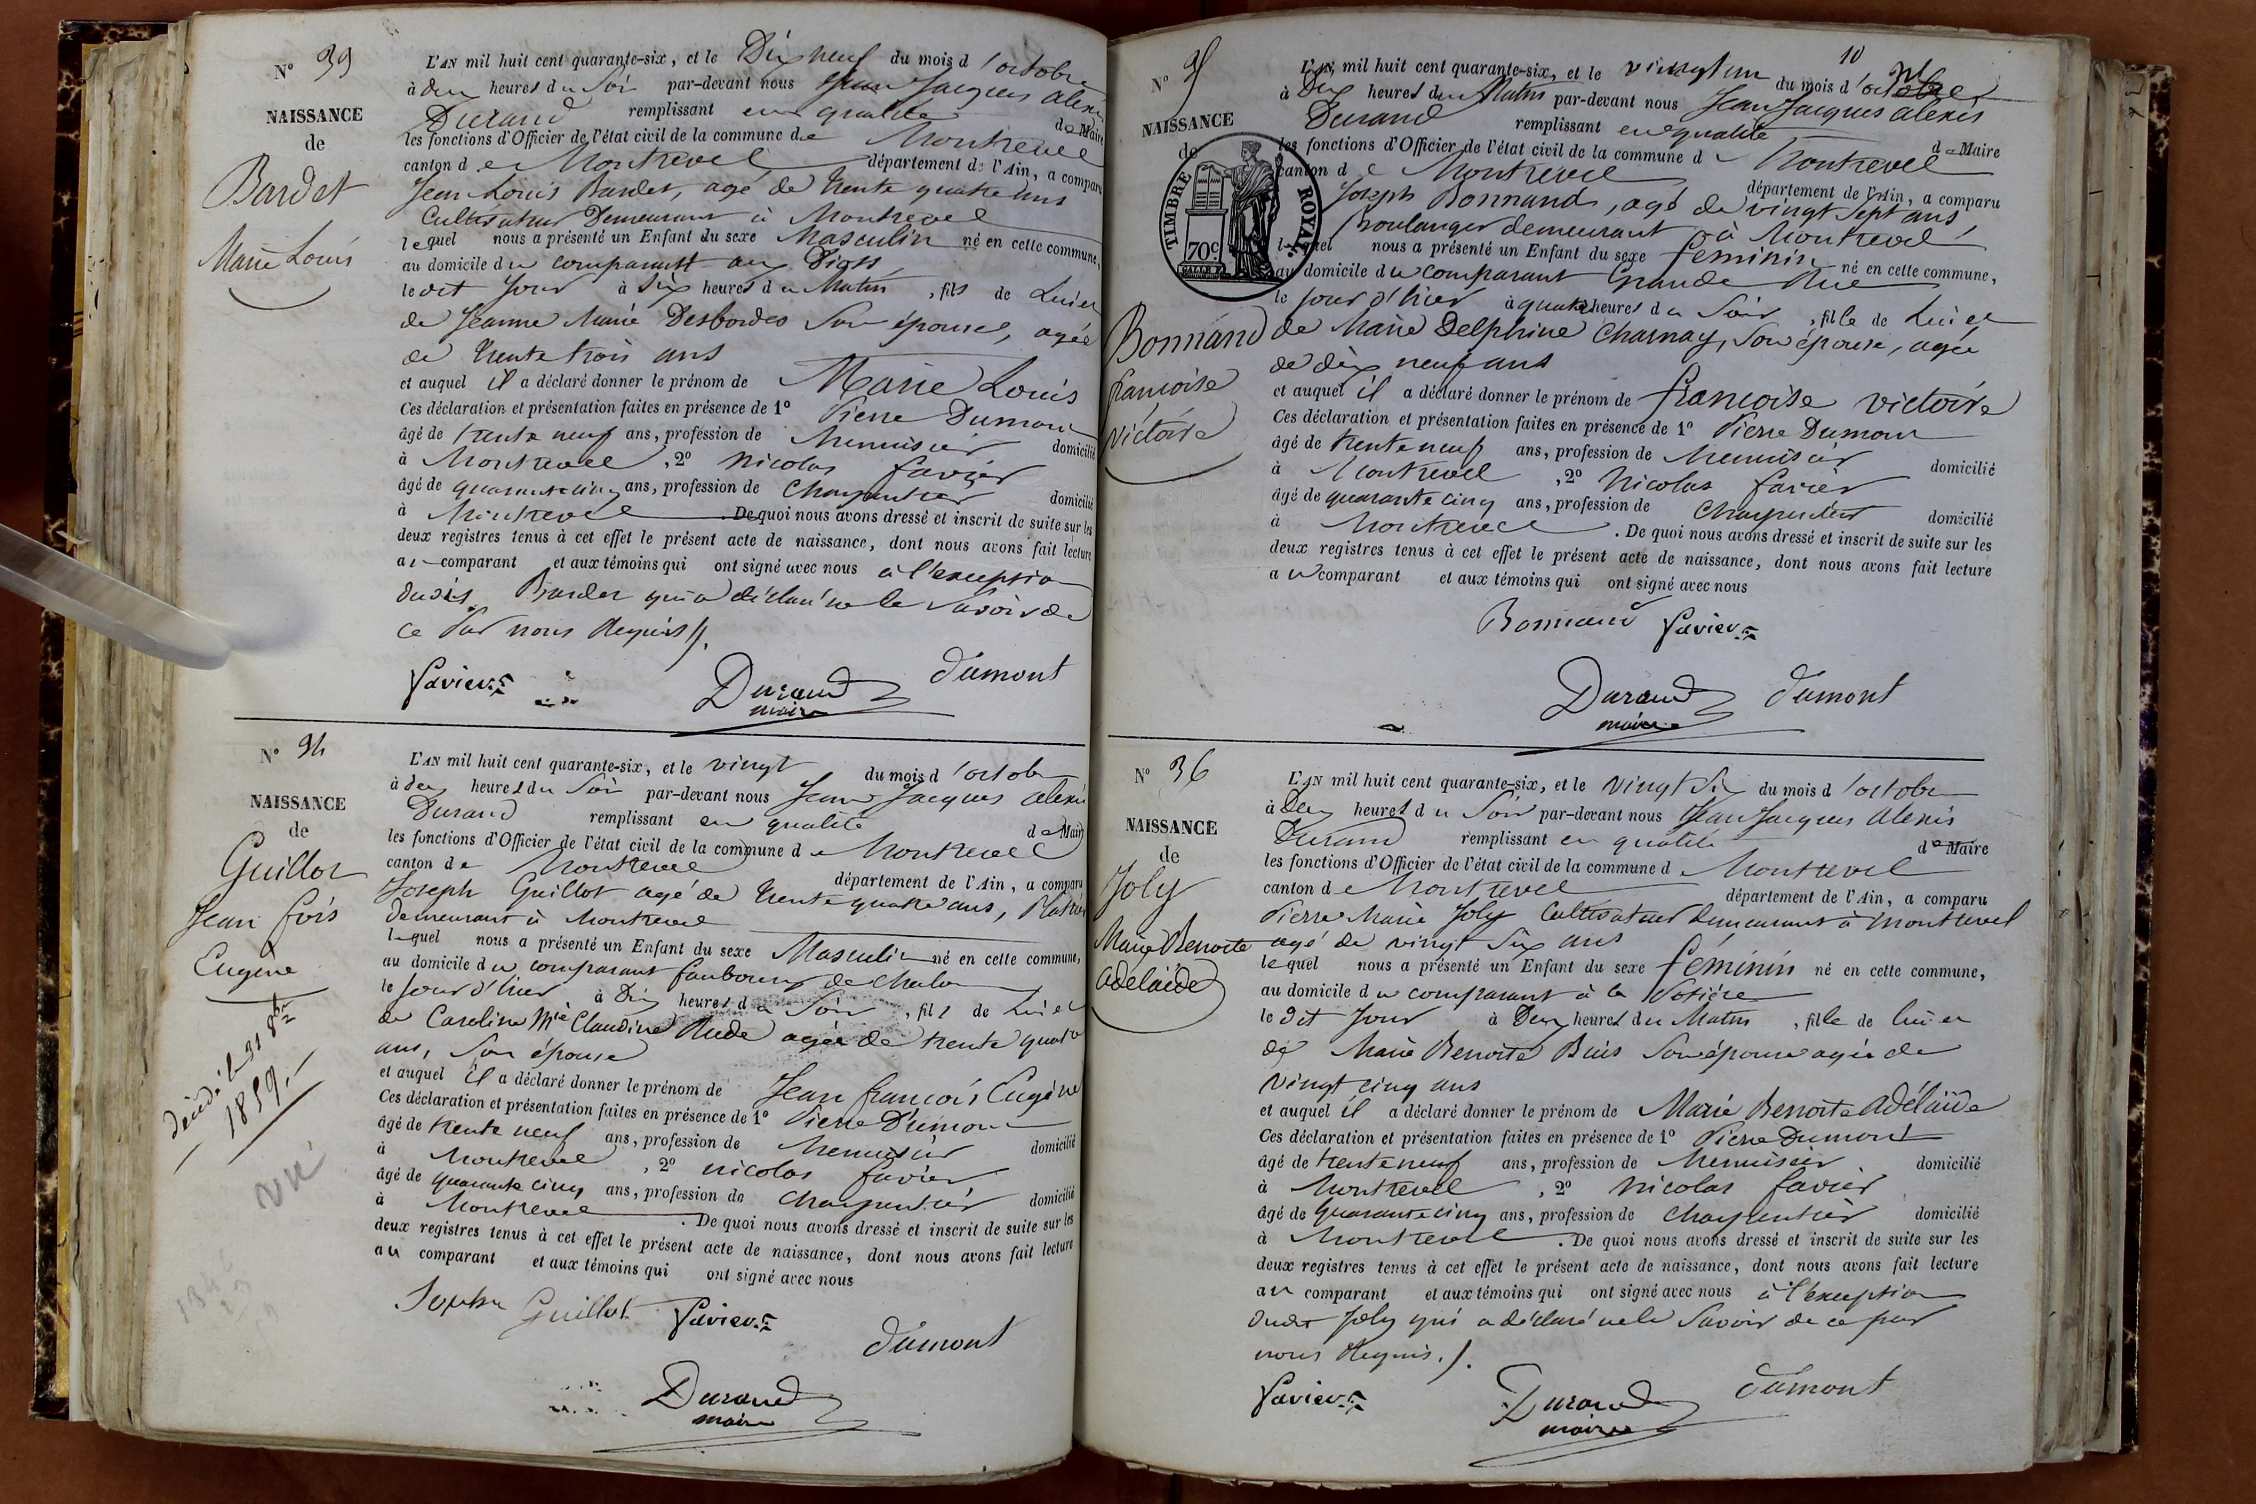 N° 33
NAISSANCE
de
Bardet
Marie Louis
L'AN mil huit cent quarante-six, et le Dix neuf du mois d'octobre
à deux heures du Soir par-devant nous Jean Jacques alexis
Durand remplissant en qualité de Maire
les fonctions d'Officier de l'état civil de la commune de Montrevel
canton de Montrevel département de l'Ain, a comparu
Jean Louis Bardet, agé de trente quatre ans
Cultivateur Demeurant à Montrevel
lequel nous a présenté un Enfant du sexe Masculin né en cette commune,
au domicile du comparant aux
le dit Jour à Six heures du Matin, fils de Lui et
de Jeanne Marie Desbordes Son épouse, agée
de trente trois ans
et auquel il a déclaré donner le prénom de Marie Louis
Ces déclaration et présentation faites en présence de 1° Pierre Dumont
âgé de trente neuf ans, profession de Menuisier domicilié
à Montrevel, 2° Nicolas favier
âgé de quarante cinq ans, profession de Charpentier domicilié
à Montrevel. De quoi nous avons dressé et inscrit de suite sur les
deux registres tenus à cet effet le présent acte de naissance, dont nous avons fait lecture
au comparant et aux témoins qui ont signé avec nous à l'exception
dudit Bardet qui a déclaré ne le Savoir de
ce par nous Requis
favier
Durand
maire
dumont
N° 34
NAISSANCE
de
Guillot
Jean fois
Eugène
décédé le 31 8bre
1859
vu
L'AN mil huit cent quarante-six, et le vingt du mois d'octobre
à deux heures du Soir par-devant nous Jean Jacques alexis
Durand remplissant en qualité de Maire
les fonctions d'Officier de l'état civil de la commune de Montrevel
canton de Montrevel département de l'Ain, a comparu
Joseph Guillot agé de trente quatre ans,
demeurant à Montrevel
lequel nous a présenté un Enfant du sexe Masculin né en cette commune,
au domicile du comparant faubourg de chalon
le Jour d'hier à Dix heures du Soir, fils de Lui et
de Caroline Mie Claudine Rude agée de trente quatre
ans, Son épouse
et auquel il a déclaré donner le prénom de Jean francois Eugène
Ces déclaration et présentation faites en présence de 1° Pierre Dumont
âgé de trente neuf ans, profession de Menuisier domicilié
à Montrevel, 2° nicolas favier
âgé de quarante cinq ans, profession de charpentier domicilié
à Montrevel. De quoi nous avons dressé et inscrit de suite sur les
deux registres tenus à cet effet le présent acte de naissance, dont nous avons fait lecture
au comparant et aux témoins qui ont signé avec nous
Joseph Guillot
favier
dumont
Durand
maire
10
N° 35
NAISSANCE
de
TIMBRE ROYAL
70c
Bonnand
francoise
victoire
L'AN mil huit cent quarante-six, et le vingt un du mois d'octobre
à Dix heures du Matin par-devant nous Jean Jacques alexis
Durand remplissant en qualité de Maire
les fonctions d'Officier de l'état civil de la commune de Montrevel
canton de Montrevel département de l'Ain, a comparu
Joseph Bonnand, agé de vingt Sept ans,
Boulanger demeurant à Montrevel
lequel nous a présenté un Enfant du sexe féminin né en cette commune,
au domicile du comparant Grande Rue
le Jour d'hier à quatre heures du Soir, fille de Lui et
de Marie Delphine Charnay, Son épouse, agée
de dix neuf ans
et auquel il a déclaré donner le prénom de francoise victoire
Ces déclaration et présentation faites en présence de 1° Pierre Dumont
âgé de trente neuf ans, profession de Menuisier domicilié
à Montrevel, 2° Nicolas favier
âgé de quarante cinq ans, profession de Charpentier domicilié
à Montrevel. De quoi nous avons dressé et inscrit de suite sur les
deux registres tenus à cet effet le présent acte de naissance, dont nous avons fait lecture
au comparant et aux témoins qui ont signé avec nous
Bonnand favier
Durand
maire
dumont
N° 36
NAISSANCE
de
Joly
Marie Benoite
adelaide
L'AN mil huit cent quarante-six, et le vingt Six du mois d'octobre
à Deux heures du Soir par-devant nous Jean Jacques Alexis
Durand remplissant en qualité de Maire
les fonctions d'Officier de l'état civil de la commune de Montrevel
canton de Montrevel département de l'Ain, a comparu
Pierre Marie Joly Cultivateur demeurant à montrevel
agé de vingt Six ans
lequel nous a présenté un Enfant du sexe féminin né en cette commune,
au domicile du comparant à la
le dit Jour à Deux heures du Matin, fille de lui et
de Marie Benoite Buis Son épouse agée de
vingt cinq ans
et auquel il a déclaré donner le prénom de Marie Benoite adélaïde
Ces déclaration et présentation faites en présence de 1° Pierre Dumont
âgé de trente neuf ans, profession de Menuisier domicilié
à Montrevel, 2° Nicolas favier
âgé de quarante cinq ans, profession de charpentier domicilié
à Montrevel. De quoi nous avons dressé et inscrit de suite sur les
deux registres tenus à cet effet le présent acte de naissance, dont nous avons fait lecture
au comparant et aux témoins qui ont signé avec nous à l'exception
dudit Joly qui a déclaré ne le Savoir de ce par
nous Requis
favier
Durand
maire
dumont